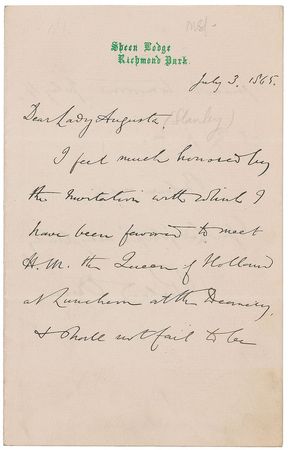 MS-
Sheen Lodge
Richmond Park.
July 3. 1865.
Dear Lady Augusta, (Stanley)
I feel much honored by
the Invitation with which I
have been favored to meet
H.M. the Queen of Holland
at Luncheon at the Deanery,
& shall not fail to be